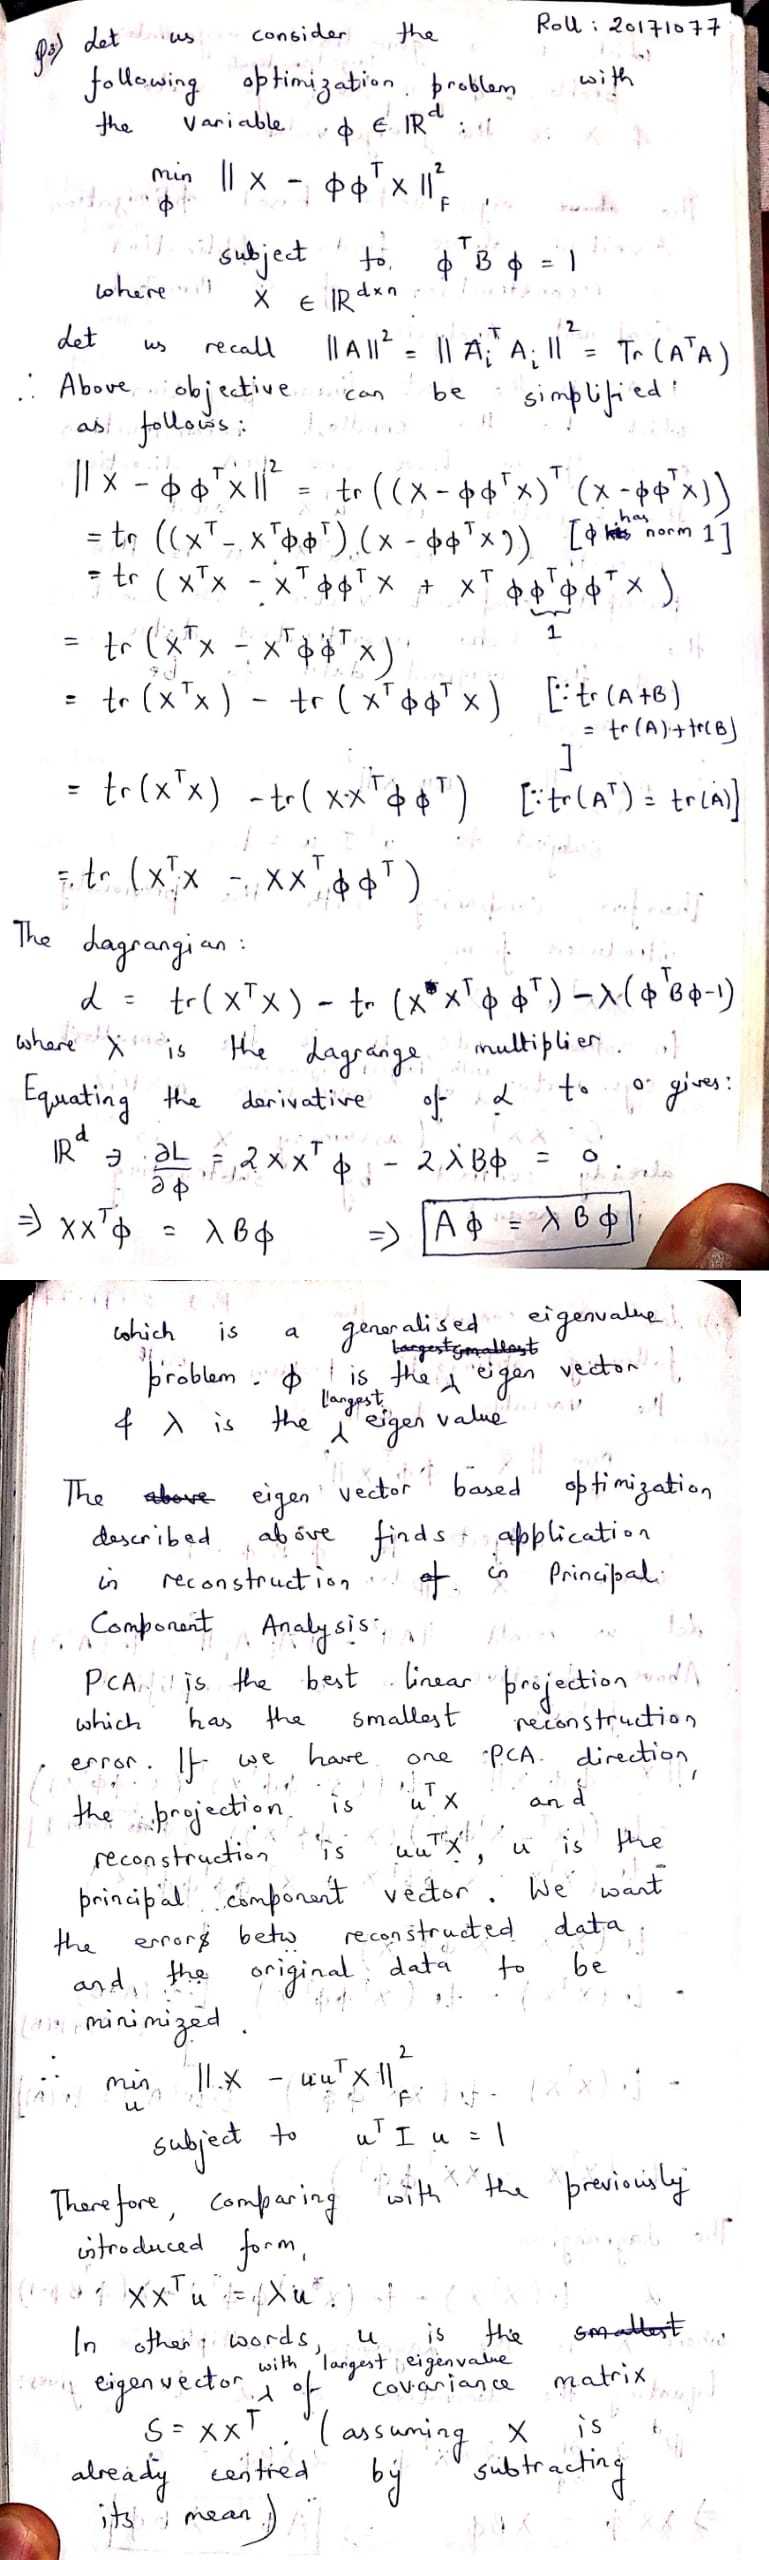 Roll : 20171077
Q3) Let us consider the
following optimization problem with
the variable ϕ ∈ ℝᵈ :
min_ϕ || X - ϕϕᵀX ||²_F ,
subject to ϕᵀBϕ = 1
where X ∈ ℝᵈˣⁿ
Let us recall ||A||² = || Aᵢᵀ Aᵢ ||² = Tr (AᵀA)
∴ Above objective can be simplified
as follows :
|| X - ϕϕᵀX ||² = tr ((X - ϕϕᵀX)ᵀ (X - ϕϕᵀX))
= tr ((Xᵀ - Xᵀϕϕᵀ) (X - ϕϕᵀX)) [ϕ has norm 1]
= tr ( XᵀX - XᵀϕϕᵀX + XᵀϕϕᵀϕϕᵀX )
1
= tr (XᵀX - XᵀϕϕᵀX)
= tr (XᵀX) - tr ( XᵀϕϕᵀX ) [∵ tr (A+B)
= tr(A)+tr(B)
]
= tr(XᵀX) - tr( XXᵀϕϕᵀ) [∵ tr(Aᵀ) = tr(A)]
= tr (XᵀX - XXᵀϕϕᵀ)
The Lagrangian :
L = tr(XᵀX) - tr (XXᵀϕϕᵀ) - λ(ϕᵀBϕ-1)
where λ is the Lagrange multiplier.
Equating the derivative of L to 0 gives:
ℝᵈ ∋ ∂L/∂ϕ = 2XXᵀϕ - 2λBϕ = 0.
⇒ XXᵀϕ = λBϕ ⇒ Aϕ = λBϕ
which is a generalised eigenvalue
problem. ϕ is the eigen vector
& λ is the largest eigen value
The eigen vector based optimization
described above finds application
in reconstruction in Principal
Component Analysis.
PCA is the best linear projection
which has the smallest reconstruction
error. If we have one PCA direction,
the projection is uᵀX and
reconstruction is uuᵀX, u is the
principal component vector. We want
the error betw reconstructed data
and the original data to be
minimized.
∴ min_u || X - uuᵀX ||²_F
subject to uᵀ I u = 1
Therefore, comparing with the previously
introduced form,
XXᵀu = λu.
In other words, u is the
eigenvector with largest eigenvalue λ of covariance matrix
S = XXᵀ. (assuming X is
already centred by subtracting
its mean)